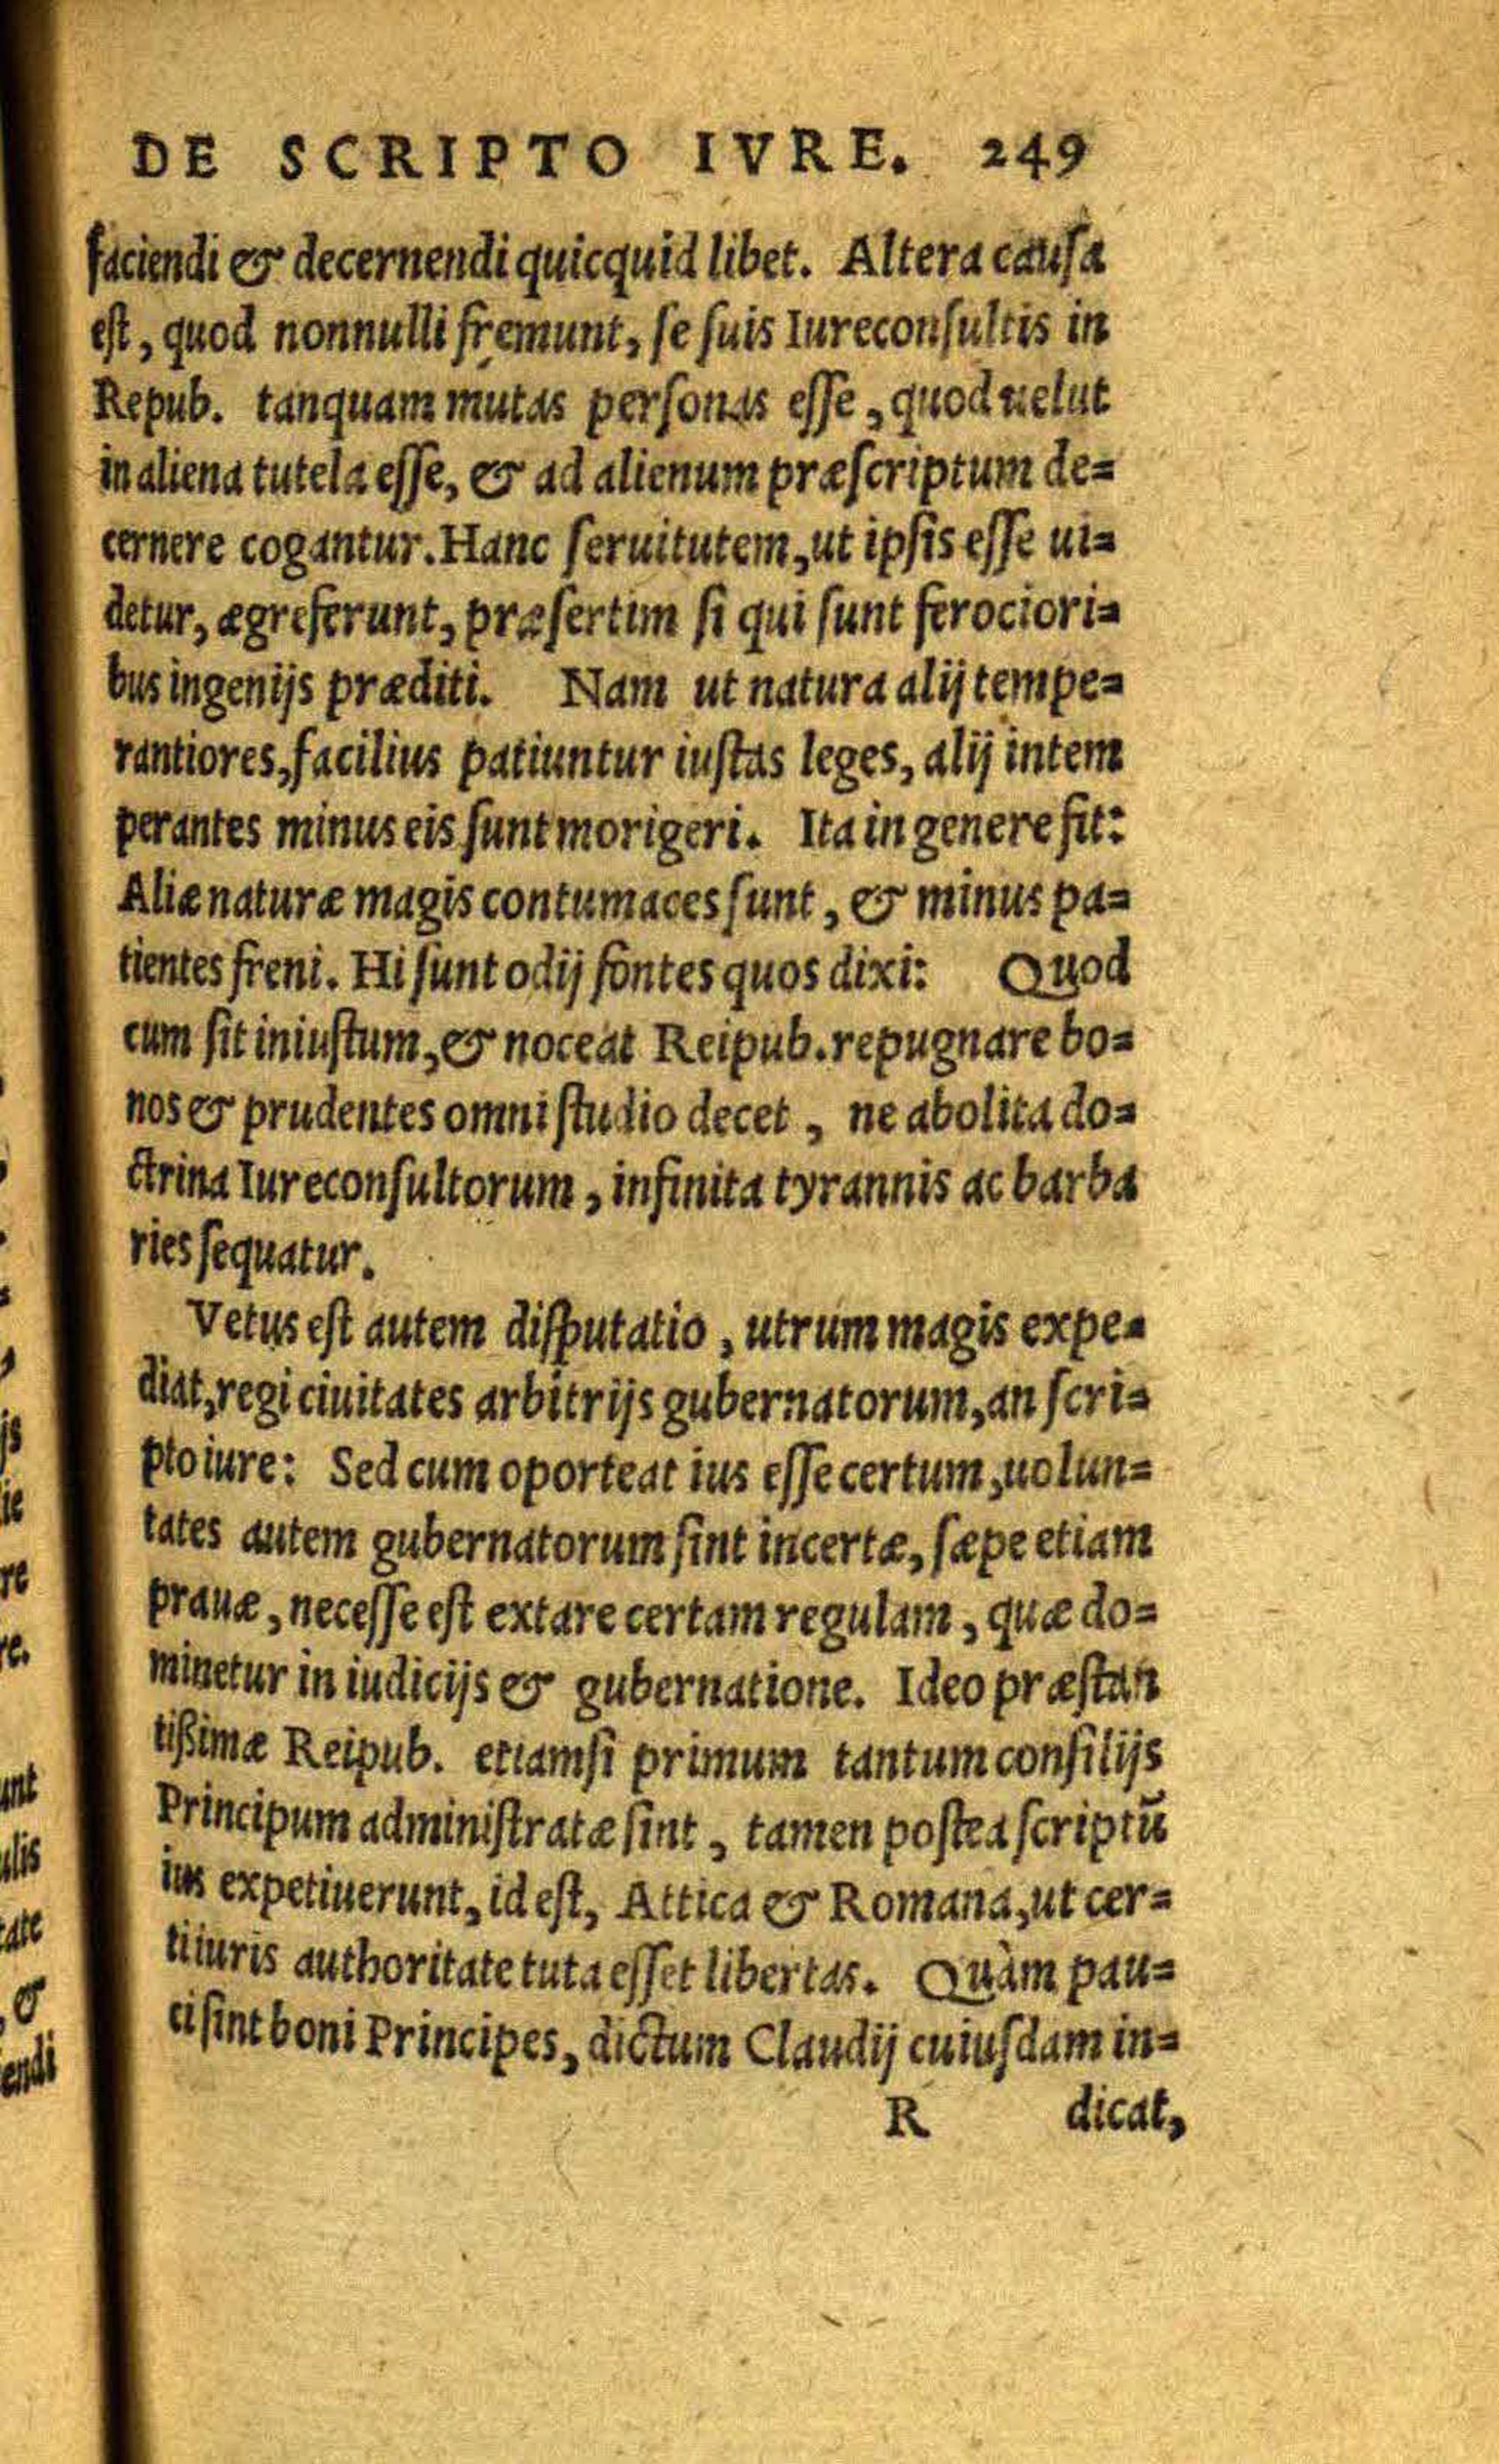 DE SCRIPTO IVRE. 249
faciendi & decernendi quicquid libet. Altera causa
est, quod nonnulli fremunt, se suis Iureconsultis in
Repub. tanquam mutas personas esse, quod uelut
in aliena tutela esse, & ad alienum præscriptum de=
cernere cogantur. Hanc seruitutem, ut ipsis esse ui=
detur, ægre ferunt, præsertim si qui sunt ferociori=
bus ingenijs præditi. Nam ut natura alij tempe=
rantiores, facilius patiuntur iustas leges, alij intem
perantes minus eis sunt morigeri. Ita in genere fit:
Aliæ naturæ magis contumaces sunt, & minus pa=
tientes freni. Hi sunt odij fontes quos dixi: Quod
cum sit iniustum, & noceat Reipub. repugnare bo=
nos & prudentes omni studio decet, ne abolita do=
ctrina Iureconsultorum, infinita tyrannis ac barba
ries sequatur.
Vetus est autem disputatio, utrum magis expe=
diat, regi ciuitates arbitrijs gubernatorum, an scri=
pto iure: Sed cum oporteat ius esse certum, uolun=
tates autem gubernatorum sint incertæ, sæpe etiam
prauæ, necesse est extare certam regulam, quæ do=
minetur in iudicijs & gubernatione. Ideo præstan
tißimæ Reipub. etiamsi primum tantum consilijs
Principum administratæ sint, tamen postea scriptū
ius expetiuerunt, id est, Attica & Romana, ut cer=
ti iuris authoritate tuta esset libertas. Quàm pau=
ci sint boni Principes, dictum Claudij cuiusdam in=
R dicat,